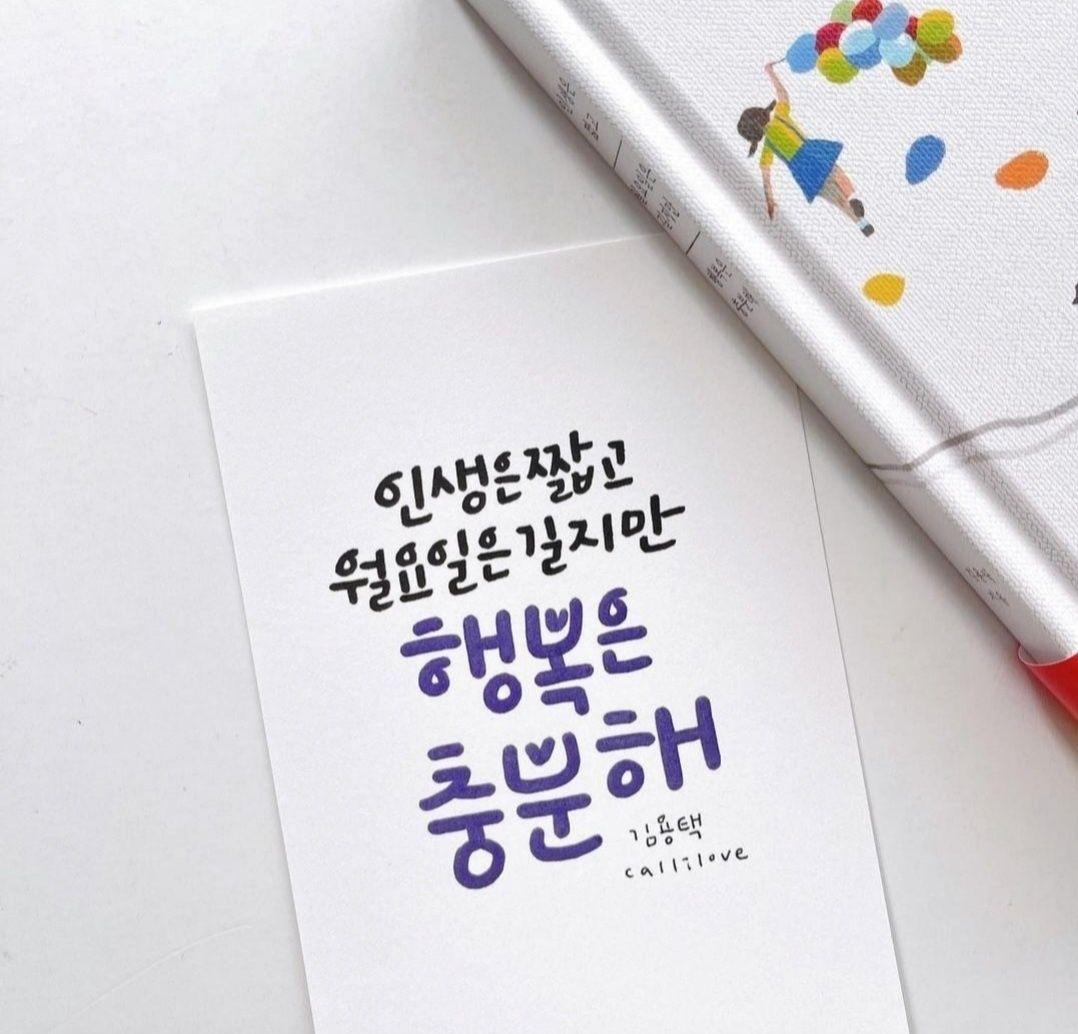 인생은 짧고
월요일은 길지만
행복은
충분해
김용택
callilove